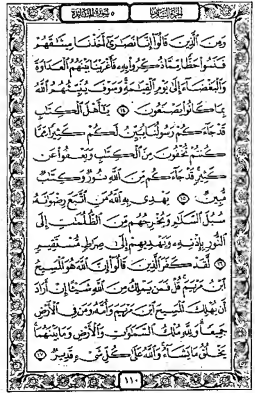 الجزء السادس ٥ سورة المائدة
وَمِنَ ٱلَّذِينَ قَالُوٓا۟ إِنَّا نَصَـٰرَىٰٓ أَخَذْنَا مِيثَـٰقَهُمْ
فَنَسُوا۟ حَظًّا مِّمَّا ذُكِّرُوا۟ بِهِۦ فَأَغْرَيْنَا بَيْنَهُمُ ٱلْعَدَاوَةَ
وَٱلْبَغْضَآءَ إِلَىٰ يَوْمِ ٱلْقِيَـٰمَةِ وَسَوْفَ يُنَبِّئُهُمُ ٱللَّهُ
بِمَا كَانُوا۟ يَصْنَعُونَ ١٤ يَـٰٓأَهْلَ ٱلْكِتَـٰبِ
قَدْ جَآءَكُمْ رَسُولُنَا يُبَيِّنُ لَكُمْ كَثِيرًا مِّمَّا
كُنتُمْ تُخْفُونَ مِنَ ٱلْكِتَـٰبِ وَيَعْفُوا۟ عَن
كَثِيرٍ قَدْ جَآءَكُم مِّنَ ٱللَّهِ نُورٌ وَكِتَـٰبٌ
مُّبِينٌ ١٥ يَهْدِى بِهِ ٱللَّهُ مَنِ ٱتَّبَعَ رِضْوَٰنَهُۥ
سُبُلَ ٱلسَّلَـٰمِ وَيُخْرِجُهُم مِّنَ ٱلظُّلُمَـٰتِ إِلَى
ٱلنُّورِ بِإِذْنِهِۦ وَيَهْدِيهِمْ إِلَىٰ صِرَٰطٍ مُّسْتَقِيمٍ
١٦ لَّقَدْ كَفَرَ ٱلَّذِينَ قَالُوٓا۟ إِنَّ ٱللَّهَ هُوَ ٱلْمَسِيحُ
ٱبْنُ مَرْيَمَ قُلْ فَمَن يَمْلِكُ مِنَ ٱللَّهِ شَيْـًٔا إِنْ أَرَادَ
أَن يُهْلِكَ ٱلْمَسِيحَ ٱبْنَ مَرْيَمَ وَأُمَّهُۥ وَمَن فِى ٱلْأَرْضِ
جَمِيعًا وَلِلَّهِ مُلْكُ ٱلسَّمَـٰوَٰتِ وَٱلْأَرْضِ وَمَا بَيْنَهُمَا
يَخْلُقُ مَا يَشَآءُ وَٱللَّهُ عَلَىٰ كُلِّ شَىْءٍ قَدِيرٌ ١٧
١١٠